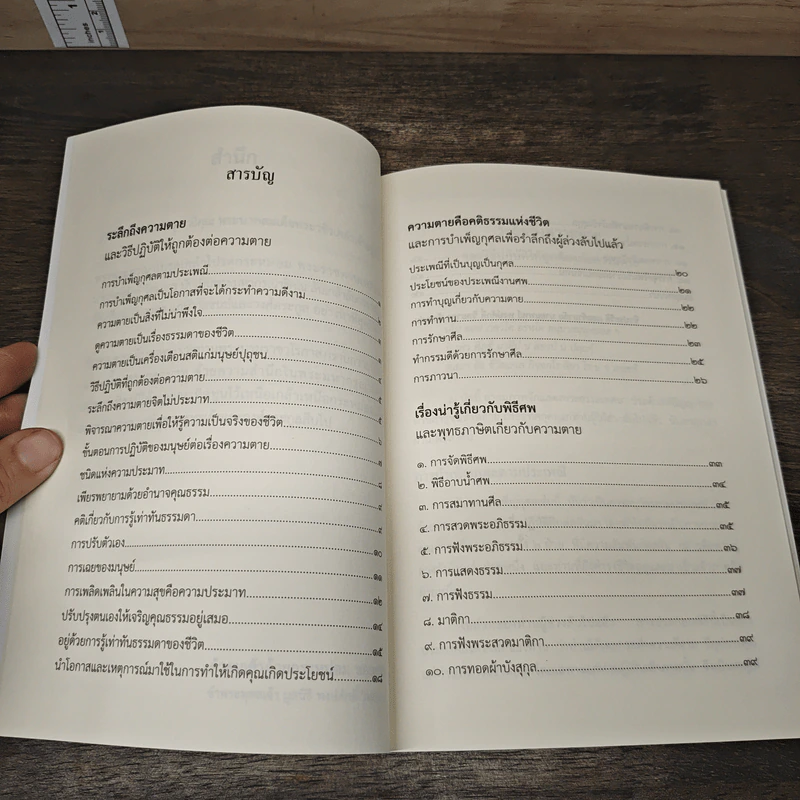 inches
1
2
สารบัญ
ระลึกถึงความตาย
และวิธีปฏิบัติให้ถูกต้องต่อความตาย
การบำเพ็ญกุศลตามประเพณี
การบำเพ็ญกุศลเป็นโอกาสที่จะได้กระทำความดีงาม
ความตายเป็นสิ่งที่ไม่น่าพึงใจ
ดูความตายเป็นเรื่องธรรมดาของชีวิต
ความตายเป็นเครื่องเตือนสติแก่มนุษย์ปุถุชน
วิธีปฏิบัติที่ถูกต้องต่อความตาย
ระลึกถึงความตายจิตไม่ประมาท
พิจารณาความตายเพื่อให้รู้ความเป็นจริงของชีวิต
ขั้นตอนการปฏิบัติของมนุษย์ต่อเรื่องความตาย
ชนิดแห่งความประมาท
เพียรพยายามด้วยอำนาจคุณธรรม
คติเกี่ยวกับการรู้เท่าทันธรรมดา
การปรับตัวเอง ๑๐
การเฉยของมนุษย์ ๑๑
การเพลิดเพลินในความสุขคือความประมาท ๑๒
ปรับปรุงตนเองให้เจริญคุณธรรมอยู่เสมอ ๑๔
อยู่ด้วยการรู้เท่าทันธรรมดาของชีวิต ๑๕
นำโอกาสและเหตุการณ์มาใช้ในการทำให้เกิดคุณเกิดประโยชน์ ๑๘
ความตายคือคติธรรมแห่งชีวิต
และการบำเพ็ญกุศลเพื่อรำลึกถึงผู้ล่วงลับไปแล้ว
ประเพณีที่เป็นบุญเป็นกุศล ๒๐
ประโยชน์ของประเพณีงานศพ ๒๑
การทำบุญเกี่ยวกับความตาย ๒๒
การทำทาน ๒๒
การรักษาศีล ๒๓
ทำกรรมดีด้วยการรักษาศีล ๒๕
การภาวนา ๒๖
เรื่องน่ารู้เกี่ยวกับพิธีศพ
และพุทธภาษิตเกี่ยวกับความตาย
๑. การจัดพิธีศพ ๓๓
๒. พิธีอาบน้ำศพ ๓๔
๓. การสมาทานศีล ๓๕
๔. การสวดพระอภิธรรม ๓๕
๕. การฟังพระอภิธรรม ๓๖
๖. การแสดงธรรม ๓๗
๗. การฟังธรรม ๓๗
๘. มาติกา ๓๘
๙. การฟังพระสวดมาติกา ๓๙
๑๐. การทอดผ้าบังสุกุล ๓๙